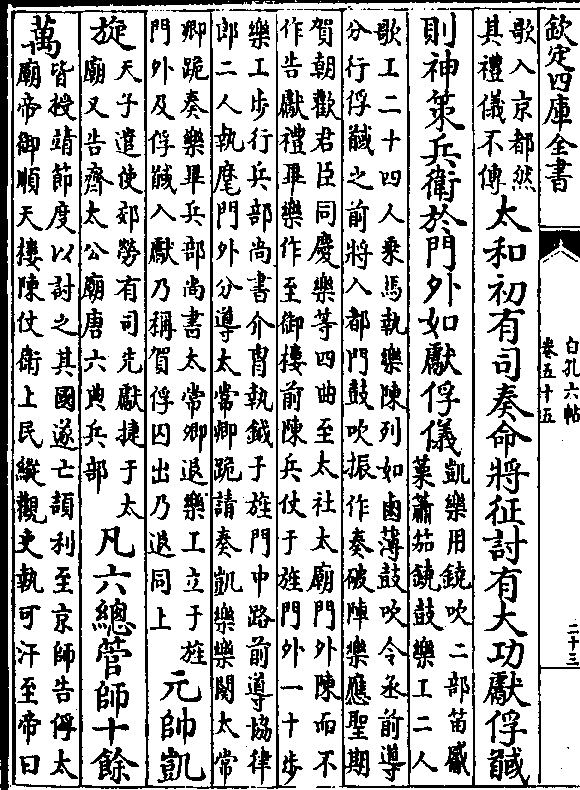 欽定四庫全書
白孔六帖
卷五十五
二十三
歌入京都然
其禮儀不傳
太和初有司奏命將征討有大功獻俘馘
則神策兵衛於門外如獻俘儀
凱樂用鐃吹二部笛觱
篥簫笳鐃鼓樂工二人
歌工二十四人乗馬執樂陳列如鹵薄鼓吹令丞前導
分行俘馘之前將入都門鼓吹振作奏破陣樂應聖期
賀朝歡君臣同慶樂等四曲至太社太廟門外陳而不
作告獻禮畢樂作至御樓前陳兵仗于旌門外一十步
樂工步行兵部尚書介胄執鉞于旌門中路前導協律
郎二人執麾門外分導太常卿跪請奏凱樂樂闋太常
卿跪奏樂畢兵部尚書太常卿退樂工立于旌
門外及俘馘入獻乃稱賀俘囚出乃退同上
元帥凱
旋
天子遣使郊勞有司先獻捷于太
廟又告齊太公廟唐六典兵部
凡六總管師十餘
萬
皆授靖節度以討之其國遂亡頡利至京師告俘太
廟帝御順天樓陳仗衛上民縱觀吏執可汗至帝曰